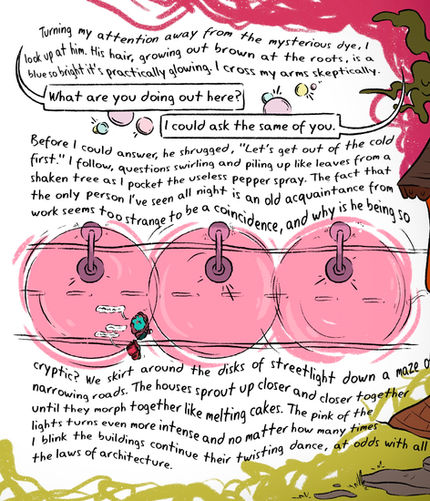 Turning my attention away from the mysterious dye, I
look up at him. His hair, growing out brown at the roots, is a
blue so bright it's practically glowing. I cross my arms skeptically.
What are you doing out here?
I could ask the same of you.
Before I could answer, he shrugged, "Let's get out of the cold
first." I follow, questions swirling and piling up like leaves from a
shaken tree as I pocket the useless pepper spray. The fact that
the only person I've seen all night is an old acquaintance from
work seems too strange to be a coincidence, and why is he being so
cryptic? We skirt around the disks of streetlight down a maze of
narrowing roads. The houses sprout up closer and closer together
until they morph together like melting cakes. The pink of the
lights turns even more intense and no matter how many times
I blink the buildings continue their twisting dance, at odds with all
the laws of architecture.